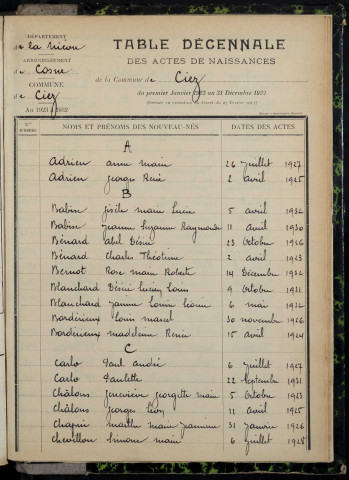 DÉPARTEMENT
de la Nièvre
ARRONDISSEMENT
de Cosne
COMMUNE
de Ciez
An 1923 à 1932
TABLE DÉCENNALE
DES ACTES DE NAISSANCES
de la Commune de Ciez
du premier Janvier 1923 au 31 Décembre 1932
NOMS ET PRÉNOMS DES NOUVEAU-NÉS DATES DES ACTES
A
Adrien anne marie 26 juillet 1927
Adrien georges René 2 avril 1925
B
Babin gisèle marie Lucie 5 avril 1932
Babin Jeanne Suzanne Raymonde 11 avril 1930
Bénard abel Désiré 23 octobre 1926
Bénard Charles Théotime 2 avril 1923
Bernot Rose marie Roberte 14 Décembre 1932
Blanchard Désiré Lucien Louis 9 octobre 1931
Blanchard Janine Louise Léonie 6 mai 1932
Bordérieux Louis marcel 30 novembre 1926
Bordérieux madeleine Renée 15 avril 1924
C
Carlo Paul andré 6 juillet 1927
Carlo Paulette 22 septembre 1931
Châlons geneviève georgette marie 5 octobre 1923
Châlons georges Léon 11 avril 1925
Chapuis marthe marie Jeannine 31 Janvier 1926
Chevillon Simone marie 6 juillet 1928